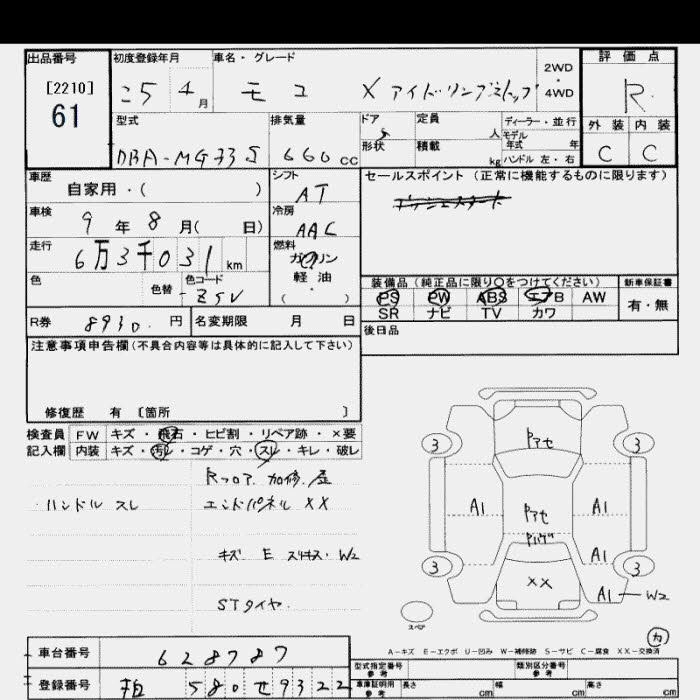 出品番号 初度登録年月 車名・グレード 2WD・4WD 評価点
[2210]
61
25 4月 モコ X アイドリングストップ R
型式 排気量 ドア 定員 人 ディーラー・並行 外装 内装
形状 積載 kg モデル年式 年
ハンドル 左・右
DBA-MG33S 660cc 5 C C
車歴 自家用・( ) シフト AT セールスポイント(正常に機能するものに限ります)
車検 9年8月( 日) 冷房 AAC
走行 6万3千031km 燃料 ガソリン
軽・油
( )
色 色替 色コード ZSV
装備品(純正品に限り○をつけてください) 新車保証書
PS PW ABS エアB AW 有・無
SR ナビ TV カワ
R券 8930.円 名変期限 月 日 後日品
注意事項申告欄(不具合内容等は具体的に記入して下さい)
修復歴 有 〔箇所 〕
検査員 FW キズ・飛石・ヒビ割・リペア跡・×要
記入欄 内装 キズ・汚レ・コゲ・穴・スレ・キレ・破レ
Rフロア 加修.歪
ハンドル スレ エンドパネル XX
キズ E スリキズ・W2
STタイヤ.
Pアセ
3 3
A1 Pアセ A1
A1
3 XX 3
A1 W2
スペア
A-キズ E-エクボ U-凹み W-補修跡 S-サビ C-腐食 XX-交換済
車台番号 628787
登録番号 580せ9322
型式指定番号 参考 類別区分番号 参考
車庫証明用 参考 長さ cm 幅 cm 高さ cm